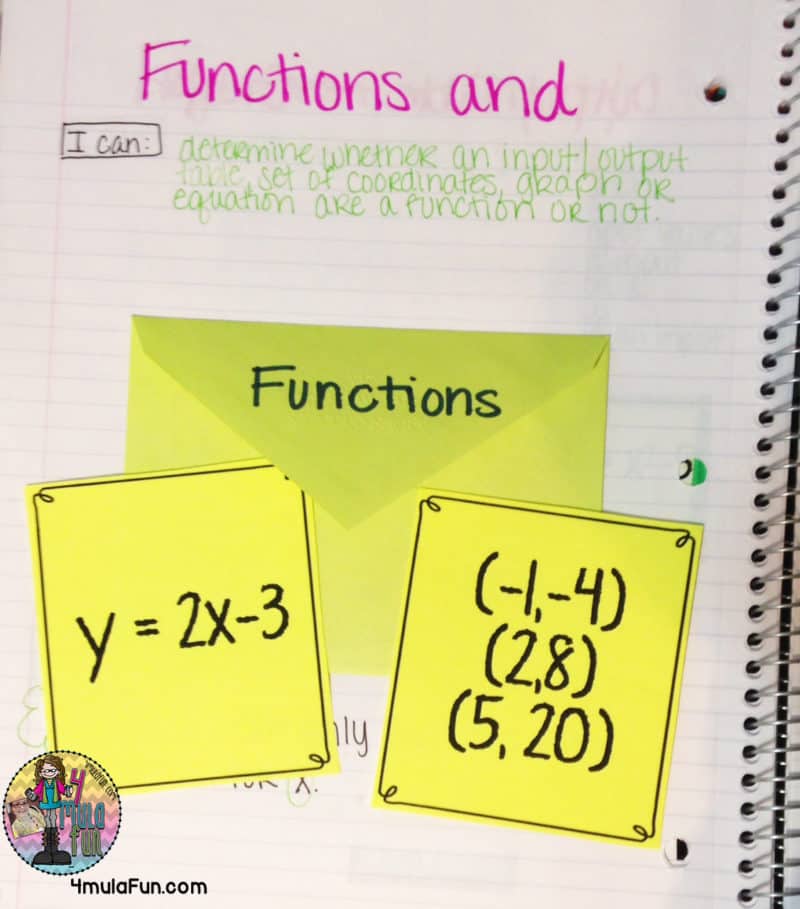 Functions and
I can:
determine whether an input/output
table, set of coordinates, graph or
equation are a function or not.
Functions
y = 2x-3
(-1,-4)
(2,8)
(5, 20)
4mulaFun.com
4
mula
fun
4mulaFun.com